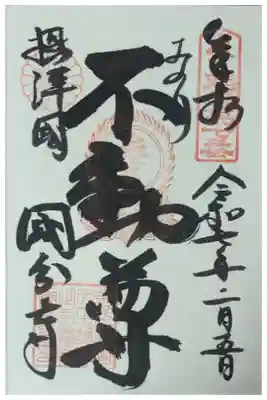 奉拝
令和七年二月五日
不動尊
摂津國
國分寺